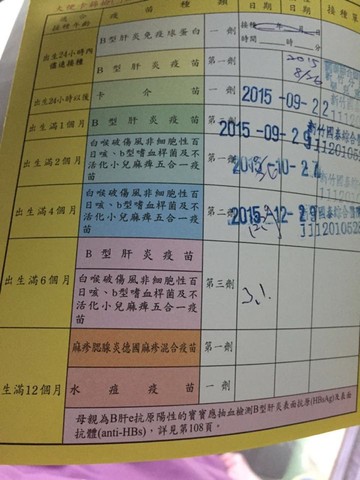 疫 苗 種 類
日期
日期
接種單
適合接種年齡
出生24小時內儘速接種
B型肝炎免疫球蛋白
一劑
時間 時 分
B型肝炎疫苗
第一劑
2015 8/26
出生24小時以後
卡介苗
一劑
2015-09-22
出生滿1個月
B型肝炎疫苗
第二劑
2015-09-29
新竹國泰綜合醫
1112010528
出生滿2個月
白喉破傷風非細胞性百日咳、b型嗜血桿菌及不活化小兒麻痺五合一疫苗
第一劑
2015-10-27
出生滿4個月
白喉破傷風非細胞性百日咳、b型嗜血桿菌及不活化小兒麻痺五合一疫苗
第二劑
2015-12-29
新竹國泰綜合醫
1112010528
出生滿6個月
B型肝炎疫苗
第三劑
白喉破傷風非細胞性百日咳、b型嗜血桿菌及不活化小兒麻痺五合一疫苗
出生滿12個月
麻疹腮腺炎德國麻疹混合疫苗
第一劑
水痘疫苗
一劑
母親為B肝e抗原陽性的寶寶應抽血檢測B型肝炎表面抗原(HBsAg)及表面
抗體(anti-HBs)，詳見第108頁。